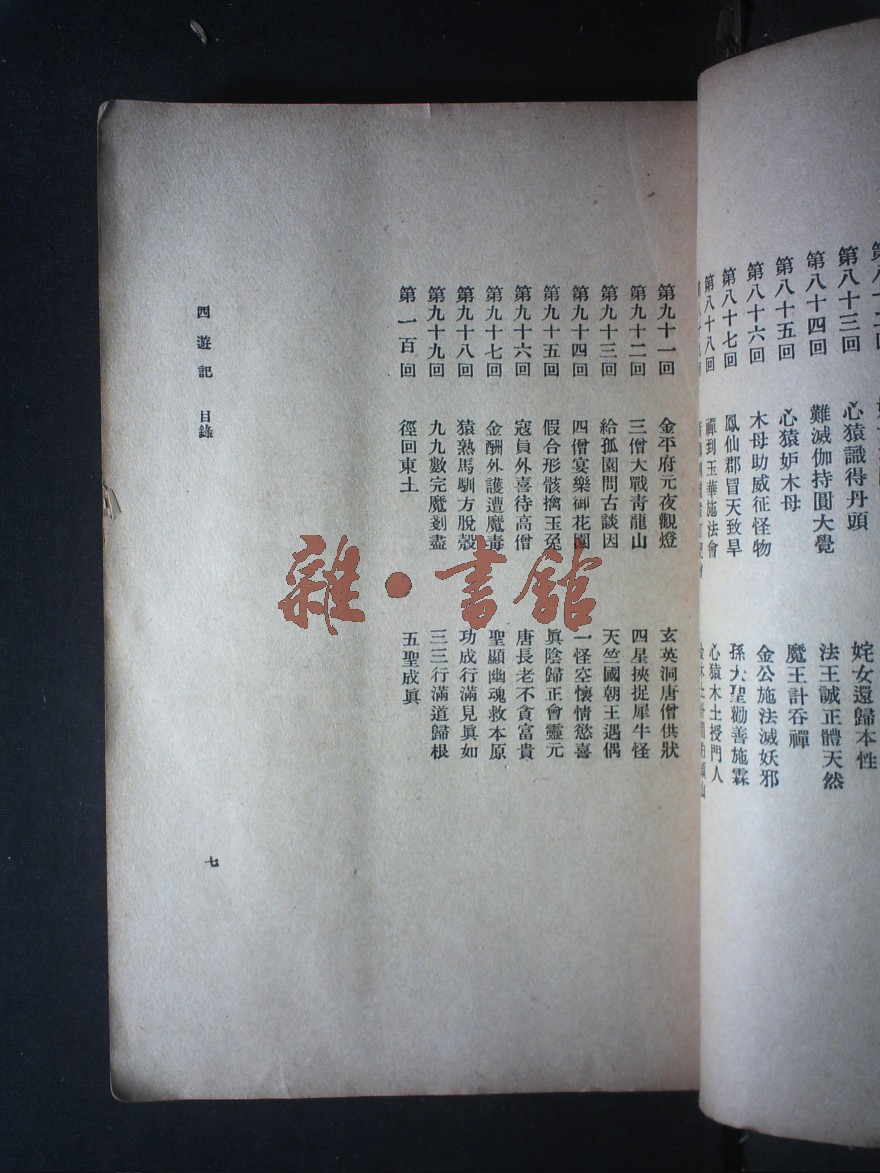 第八十三回　心猿識得丹頭　姹女還歸本性
第八十四回　難滅伽持圓大覺　法王誠正體天然
第八十五回　心猿妒木母　魔王計吞禪
第八十六回　木母助威征怪物　金公施法滅妖邪
第八十七回　鳳仙郡冒天致旱　孫大聖勸善施霖
第八十八回　禪到玉華施法會　心猿木土授門人
第九十一回　金平府元夜觀燈　玄英洞唐僧供狀
第九十二回　三僧大戰靑龍山　四星挾捉犀牛怪
第九十三回　給孤園問古談因　天竺國朝王遇偶
第九十四回　四僧宴樂御花園　一怪空懷情慾喜
第九十五回　假合形骸擒玉兔　眞陰歸正會靈元
第九十六回　寇員外喜待高僧　唐長老不貪富貴
第九十七回　金酬外護遭魔毒　聖顯幽魂救本原
第九十八回　猿熟馬馴方脫殼　功成行滿見眞如
第九十九回　九九數完魔剗盡　三三行滿道歸根
第一百回　徑回東土　五聖成眞
西遊記　目錄
七
雜·書館